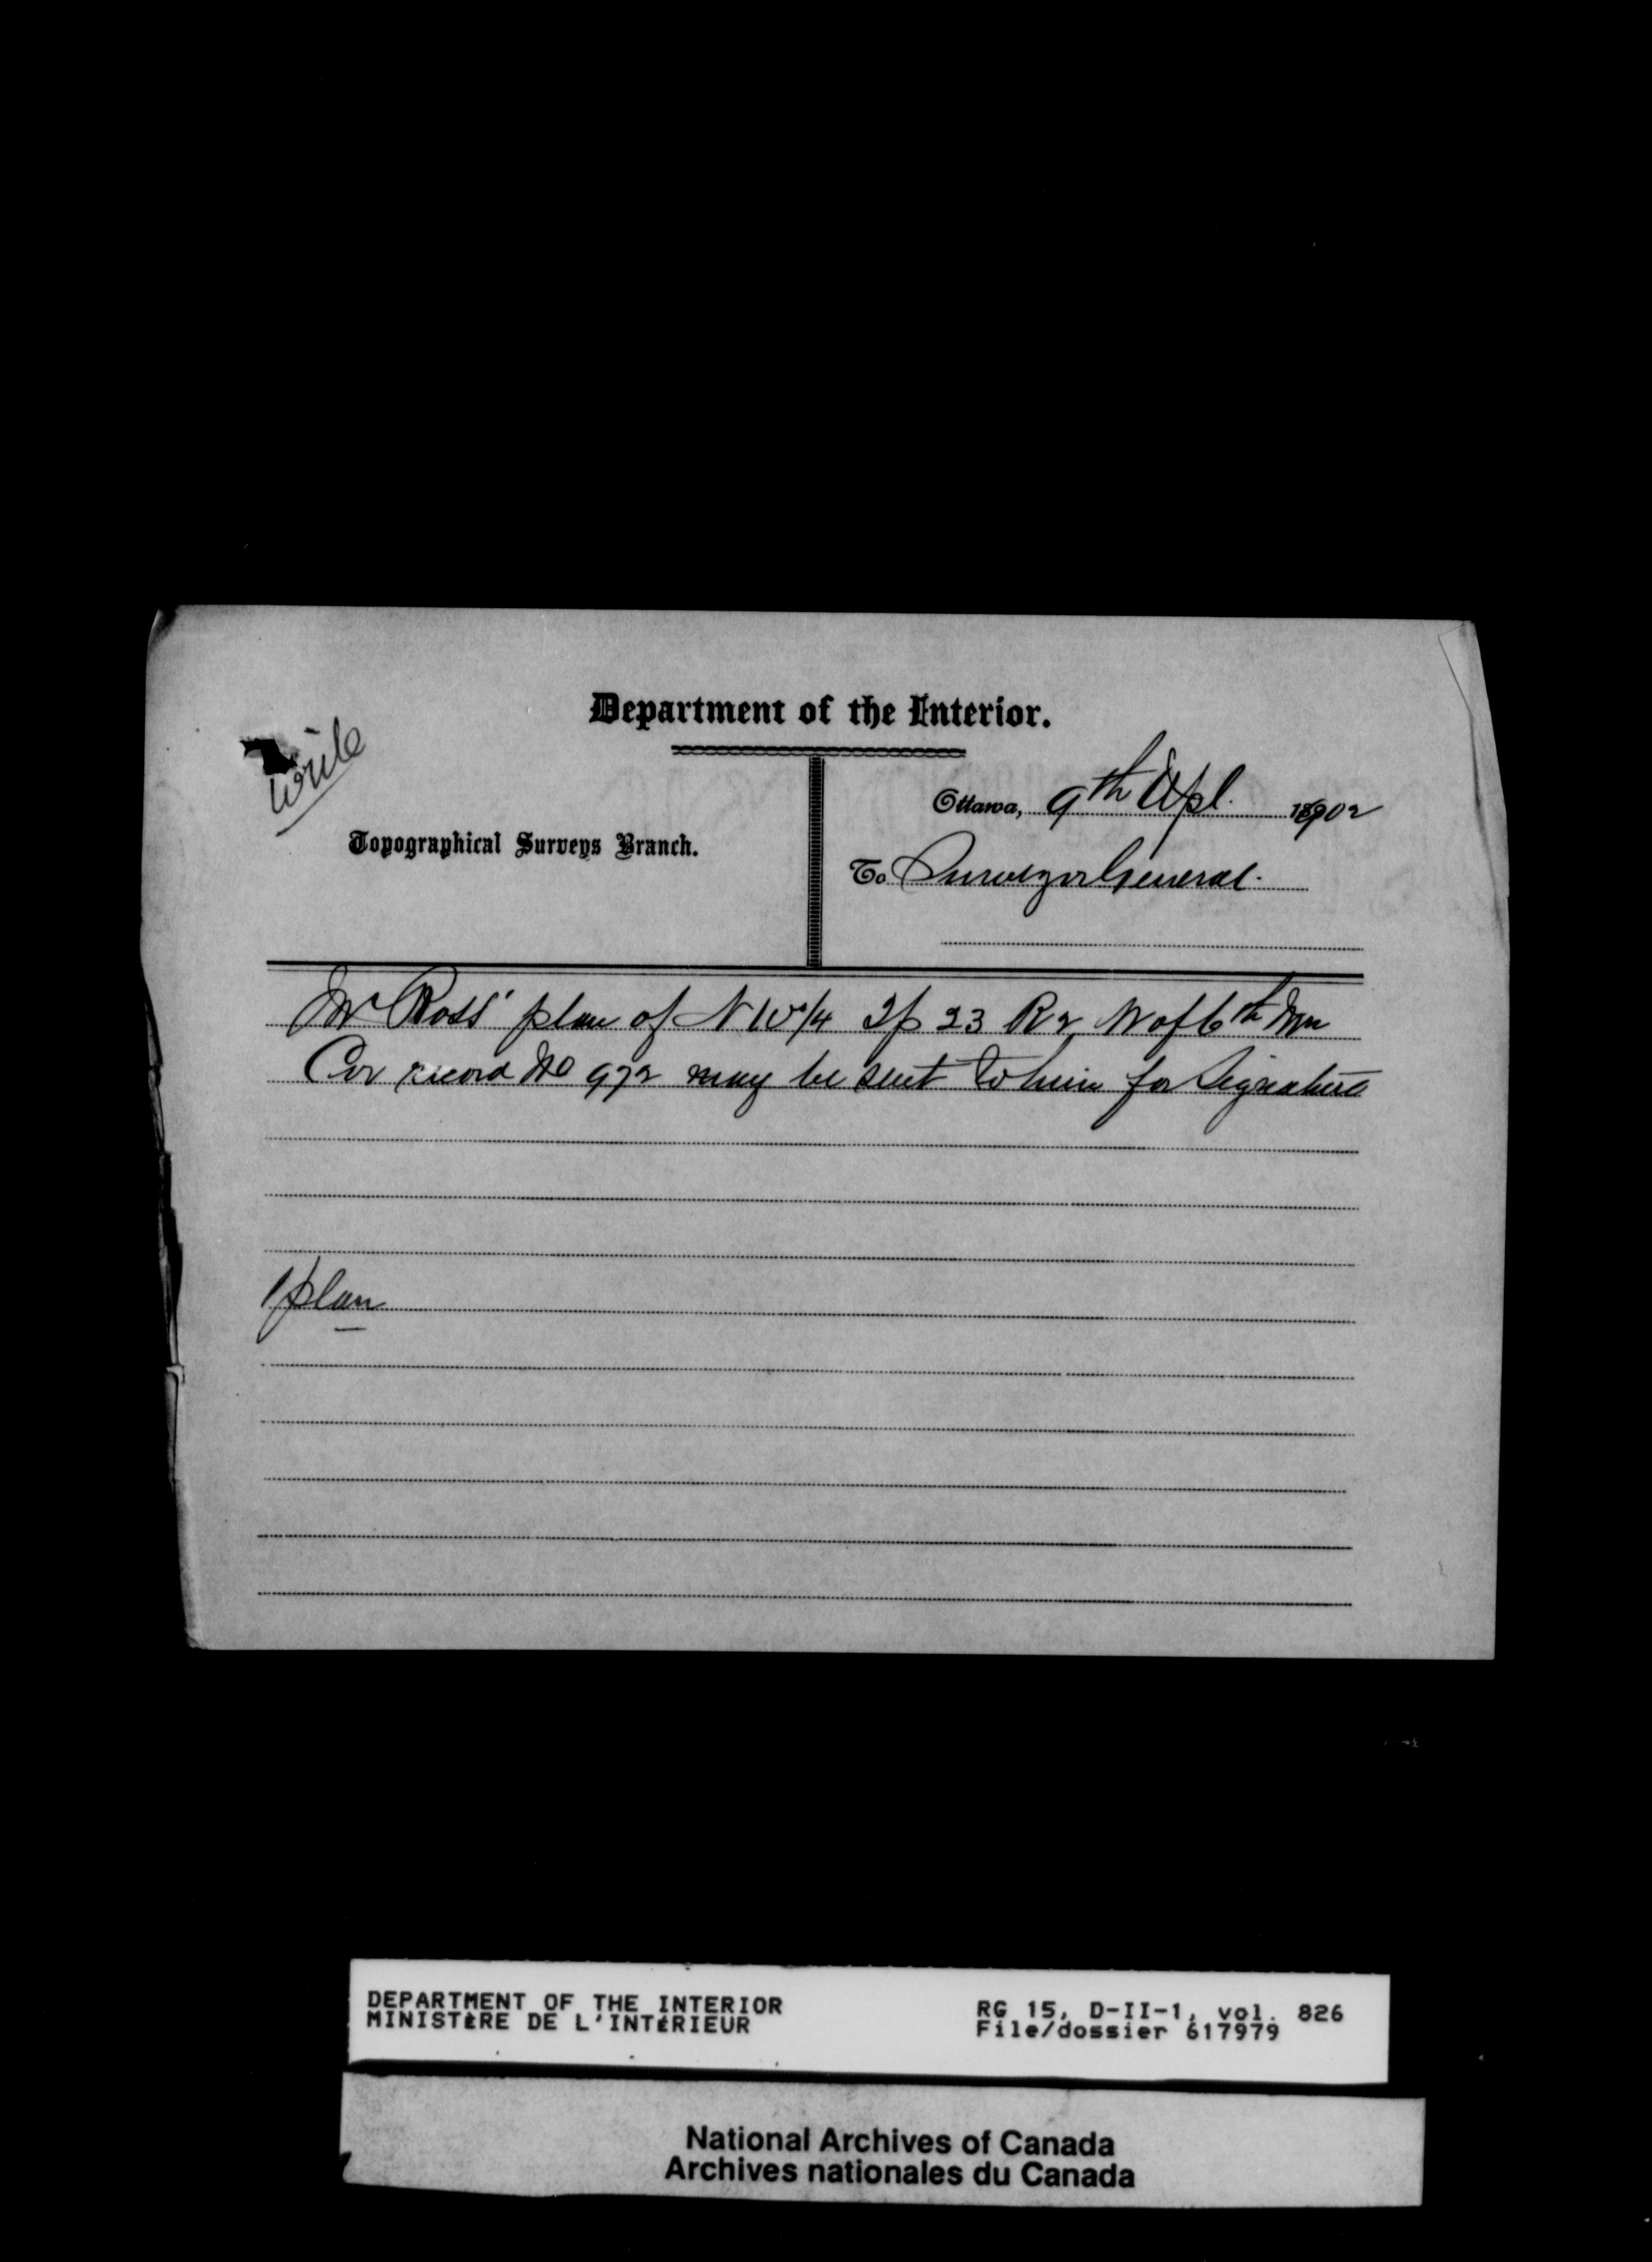 Department of the Interior.
Write
Ottawa, 9th Apl. 1902
Topographical Surveys Branch.
To Surveyor General.
Mr Ross' plan of N W 1/4 Tp 23 R 2 W of 6th Mn
Cor record No 972 may be sent to him for signature
1 plan
DEPARTMENT OF THE INTERIOR
MINISTÈRE DE L'INTÉRIEUR
RG 15, D-II-1, vol. 826
File/dossier 617979
National Archives of Canada
Archives nationales du Canada